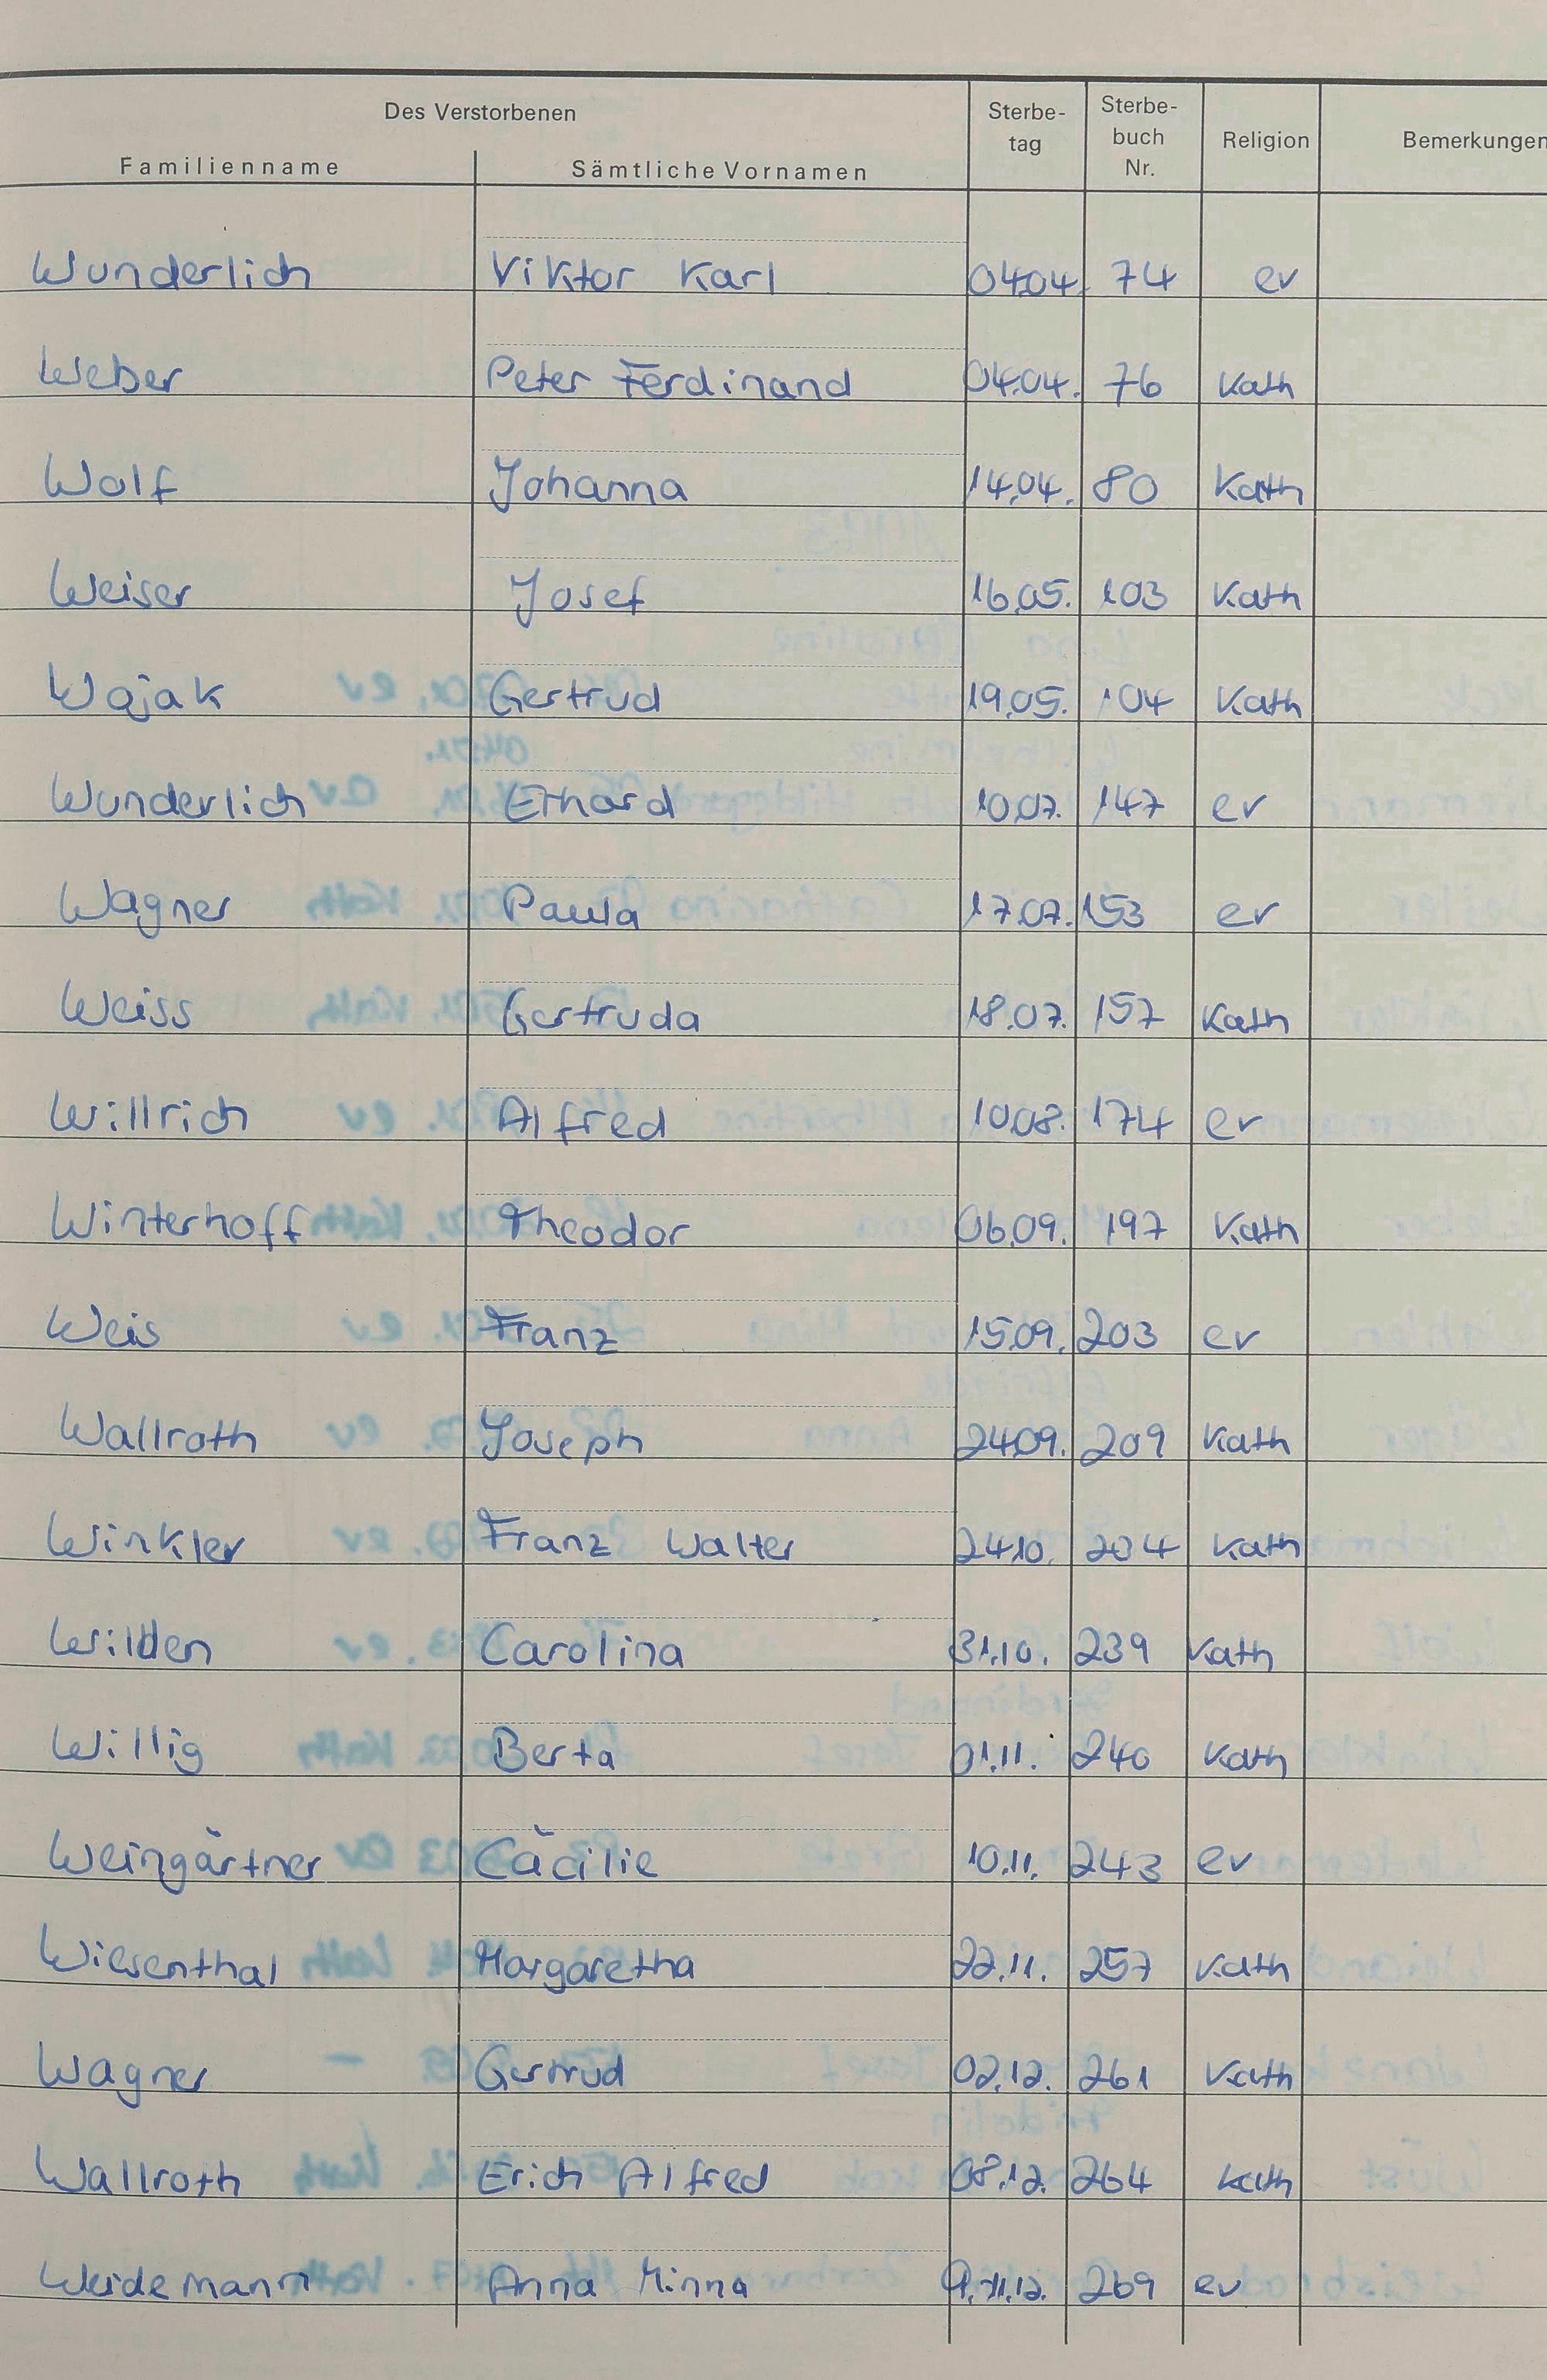 Des Verstorbenen
Familienname Sämtliche Vornamen Sterbe-tag Sterbe-buch Nr. Religion Bemerkungen
Wunderlich Viktor Karl 04.04. 74 ev
Weber Peter Ferdinand 04.04. 76 Kath
Wolf Johanna 14.04. 80 Kath
Weiser Josef 16.05. 103 Kath
Wojak Gertrud 19.05. 104 Kath
Wunderlich Erhard 10.07. 147 ev
Wagner Paula 17.07. 153 ev
Weiss Gertruda 18.07. 157 Kath
Willrich Alfred 10.08. 174 ev
Winterhoff Theodor 06.09. 197 Kath
Weis Franz 15.09. 203 ev
Wallroth Joseph 24.09. 209 Kath
Winkler Franz Walter 24.10. 234 Kath
Wilden Carolina 31.10. 239 Kath
Willig Berta 01.11. 240 Kath
Weingärtner Cäcilie 10.11. 243 ev
Wiesenthal Margaretha 22.11. 257 Kath
Wagner Gertrud 02.12. 261 Kath
Wallroth Erich Alfred 08.12. 264 Kath
Weidemann Anna Minna 269 ev